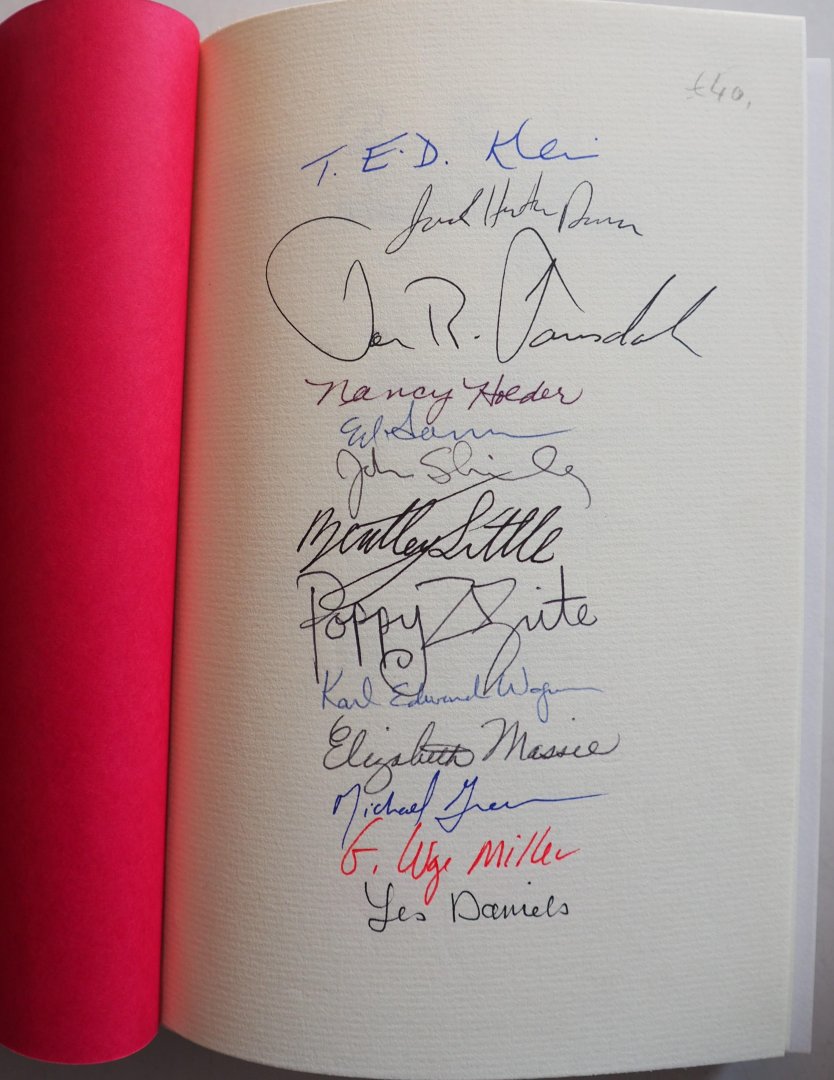 £40,
T. E. D. Klein
Jack Hunter Daves
R.
Nancy Holder
Ed Gorman
John Shirley
Bentley Little
Poppy Z Brite
Karl Edward Wagner
Elizabeth Massie
Michael Green
G. Wayne Miller
Les Daniels